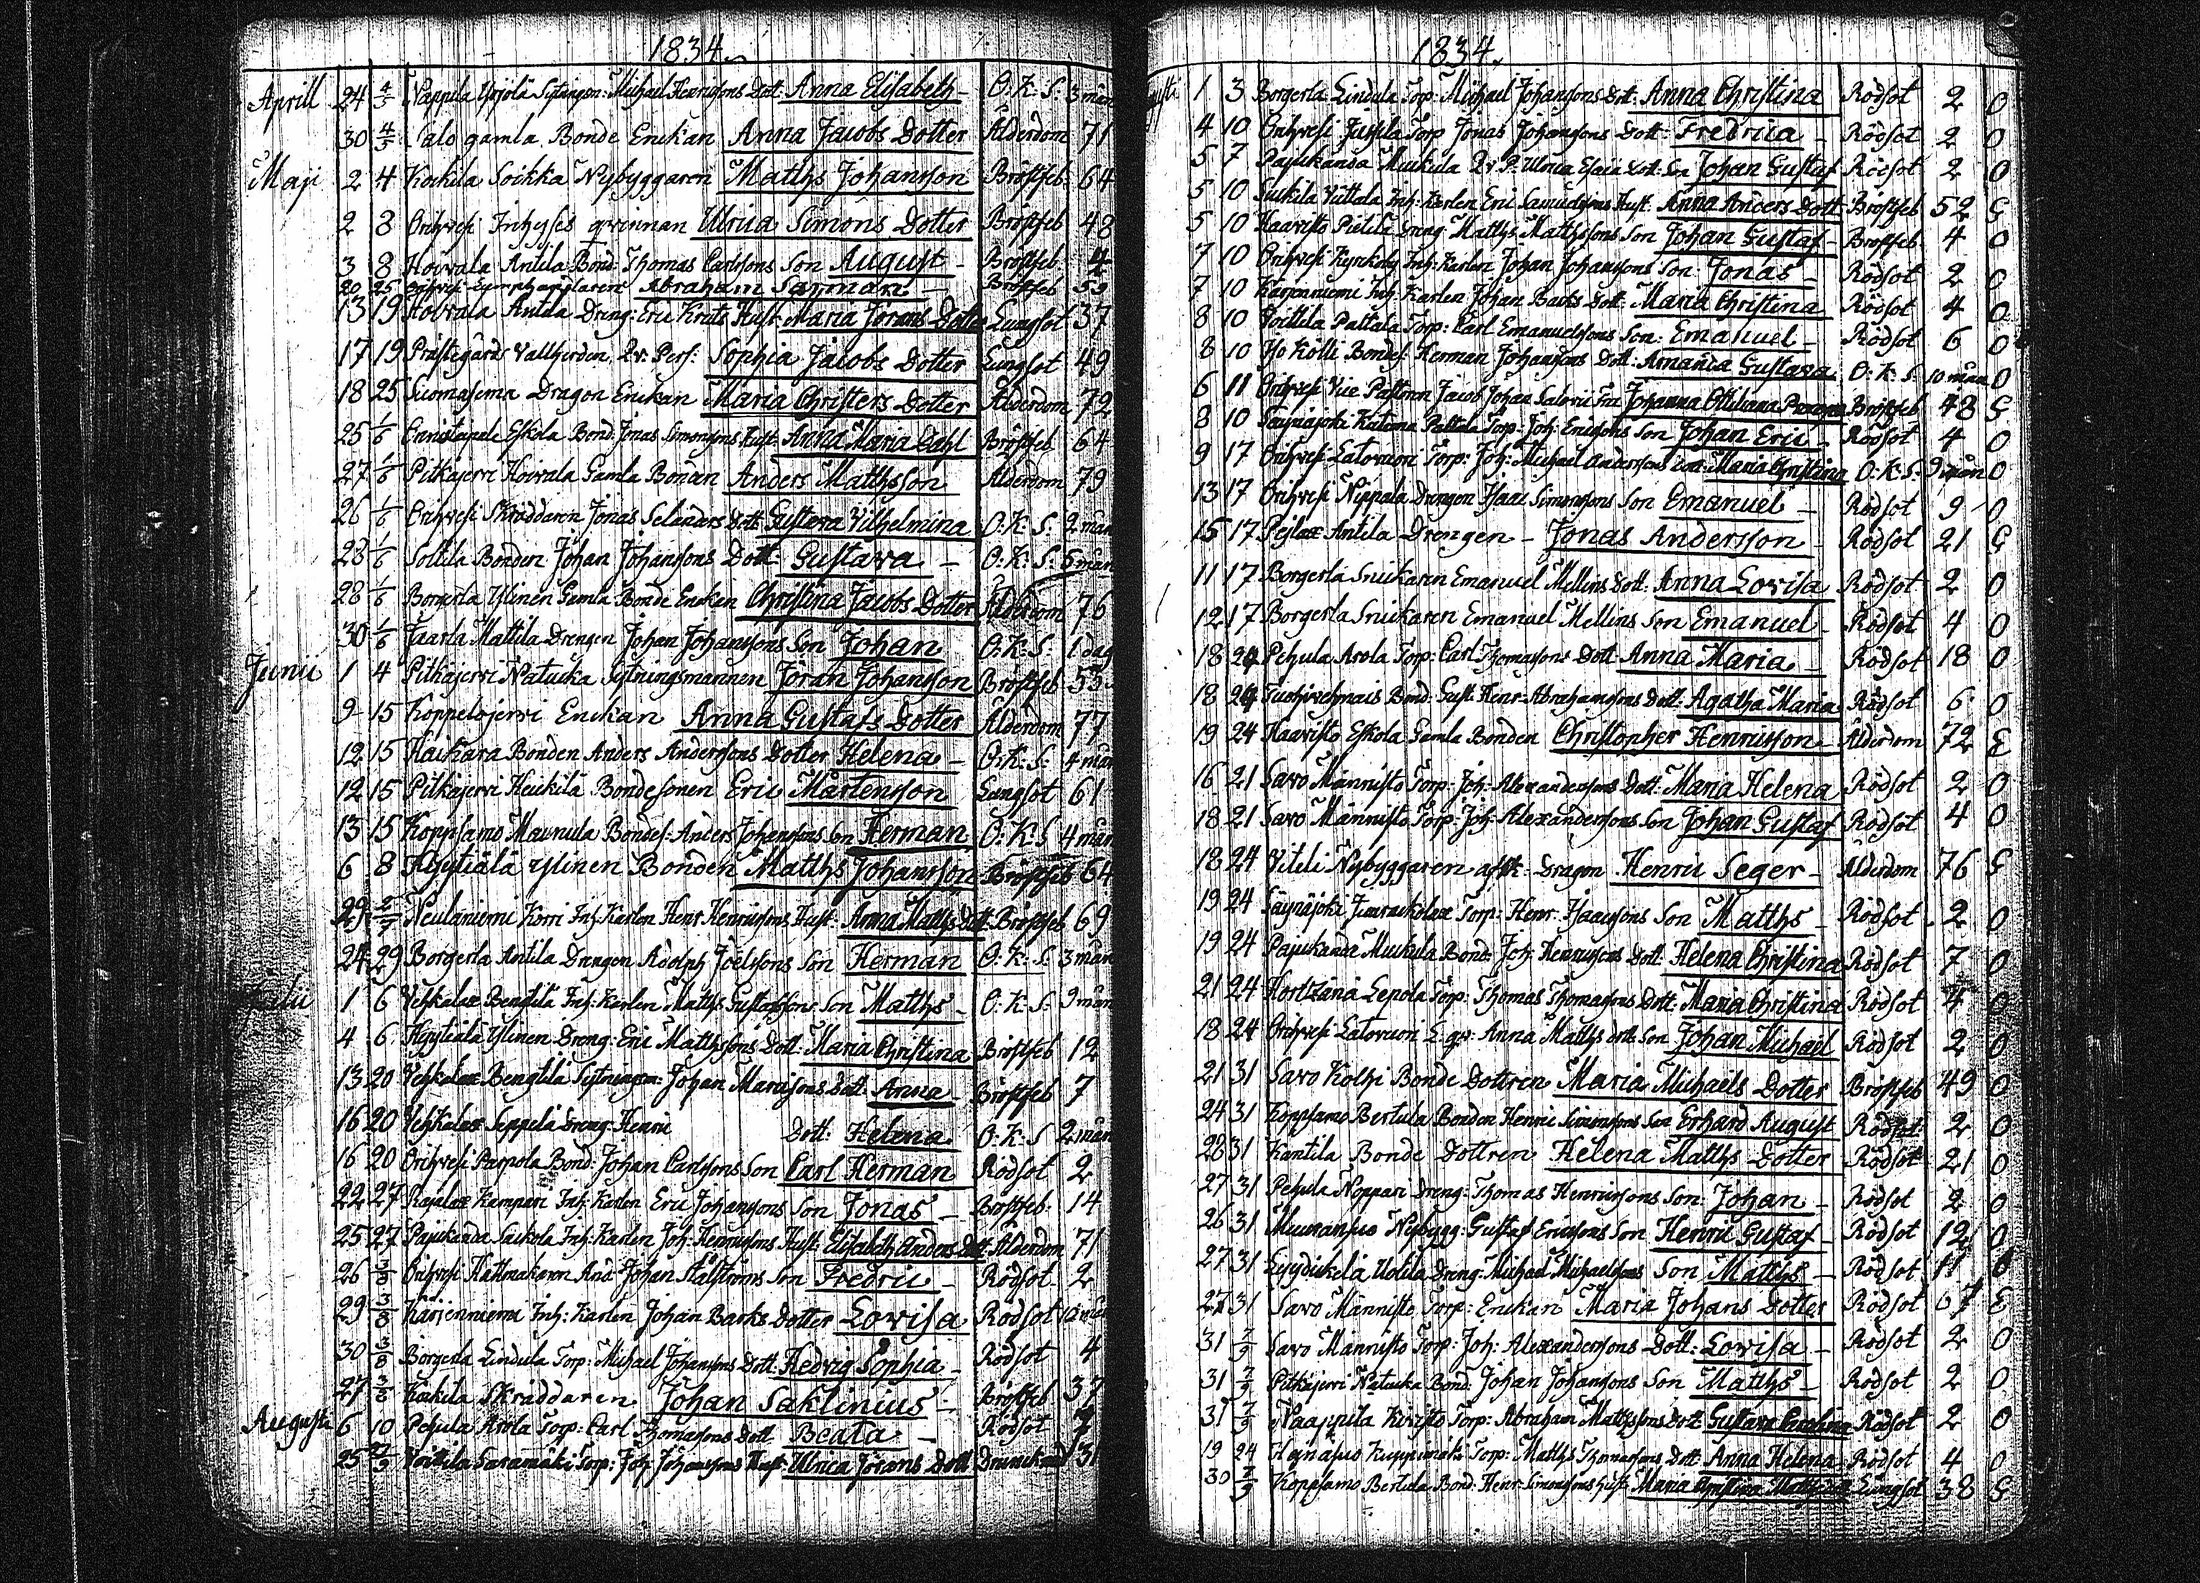 1834.
Aprill 24 4/5 Nappila Yrjölä Sytningsm: Michael Henricssons Dott: Anna Elisabeth - O. K. S. 3 mån
30 4/5 Talo gamla Bonde Enckan Anna Jacobs Dotter Ålderdom 71
Maji 2 4 Koikila Soikka Nybyggaren Matths Johansson Bröstfeb. 64
2 8 Orihvesi Inhyses qvinnan Ulrica Simons Dotter Bröstfeb 48
3 8 Hoivala Antila Bond: Thomas Carlssons Son August - Bröstfeb 4
20 25 Orihvesi Abraham Sajman - Bröstfeb 59
13 19 Hoivala Antila Dreng: Eric Krats Hust: Maria Jörans Dotter Lungsot 37
17 19 Prästegårds Vallherden Qv: Pers: Sophia Jacobs Dotter Lungsot 49
18 25 Suomasema Dragon Enckan Maria Christers Dotter Ålderdom 72
25 1/6 Onnistapale Eskola Bond: Jonas Simonssons Hust: Anna Maria Dahl Bröstfeb 64
27 1/6 Pitkäjervi Hoivala Gamla Bonden Anders Matthsson Ålderdom 79
26 1/6 Orihvesi Skräddaren Jonas Selanders Dott: Gustava Vilhelmina O: K: S: 2 mån
28 1/6 Sollila Bonden Johan Johanssons Dott: Gustava - O: K: S: 5 mån
28 1/6 Borgerla Ylinen Gamla Bonde Enckan Christina Jacobs Dotter Ålderdom 76
30 1/6 Jaarla Mattila Drengen Johan Johanssons Son Johan O: K: S: 1 dag
Junii 1 4 Pitkäjerri Natucka Sytningsmannen Jöran Johansson Bröstfeb 55
9 15 Koppelojerri Enckan Anna Gustafs Dotter Ålderdom 77
12 15 Haikara Bonden Anders Anderssons Dotter Helena - O: K: S: 4 mån
12 15 Pitkäjerri Heickilä Bondesonen Eric Mårtensson Lungsot 61
13 15 Koppsamo Maunula Bondes: Anders Johanssons Son Herman O: K: S 4 mån
6 8 Hyytiälä Ylinen Bonden Matths Johansson Bröstfeb 64
29 2/7 Neulaniemi Korri Inh: Karlen Henr: Henricssons Hust: Anna Matths Dott Bröstfeb 69
24 29 Borgerla Antila Drengen Adolph Joelssons Son Herman O: K: S. 3 mån
Julii 1 6 Vehkalax Bengtilä Inh: Karlen Matths Gustafssons Son Matths - O: K: S: 9 mån
4 6 Hyytiälä Ylinen Dreng: Eric Matthssons Dott: Maria Christina Bröstfeb 12
13 20 Vehkalax Bengtilä Sytningsm: Johan Marcissons Dott: Anna - Bröstfeb 7
16 20 Vehkalax Seppelä Dreng: Henric Dott: Helena O: K: S 2 mån
16 20 Orihvesi Parpola Bond: Johan Carlssons Son Carl Herman Rödsot 2
22 27 Rajalax Kamppari Inh: Karlen Eric Johanssons Son Jonas - Bröstfeb: 14
25 27 Pajukanda Säckola Inh: Karlen Joh: Henricssons Hust: Elisabeth Anders Dott Ålderdom 71
26 3/8 Orihvesi Hattmakaren And: Johan Stålströms Son Fredric - Rödsot 2
29 3/8 Kärjenniemi Inh: Karlen Johan Barks Dotter Lovisa Rödsot 10 mån
30 3/8 Borgerla Lindula Torp: Michael Johanssons Dott: Hedvig Sophia - Rödsot 4
27 3/8 Koikila Skräddaren Johan Saklinius - Bröstfeb 37
Augusti 6 10 Pehula Arola Torp: Carl Thomassons Dott: Beata - Rödsot 7
25 Voittila Saramäki Torp: Joh: Johanssons Hust: Ulrica Jörans Dott: Drunknad 31
1834.
1 3 Borgerla Lindula Torp: Michael Johanssons Dott: Anna Christina Rödsot 2 O
4 10 Orihvesi Jussila Torp Jonas Johanssons Dott: Fredrica - Rödsot 2 O
5 7 Pajukanda Muckila Qv: P: Ulrica Esaiæ Dott: Son Johan Gustaf Rödsot 2 O
5 10 Suckila Vättala Inh: Karlen Eric Samuelssons Hust: Anna Anders Dott Bröstfeb 52 G
5 10 Haavisto Pietilä Dreng: Matths Matthssons Son Johan Gustaf - Bröstfeb: 4 O
7 10 Orihvesi Inh: Karlen Johan Johanssons Son: Jonas - Rödsot 2 O
7 10 Kärjenniemi Inh: Karlen Johan Barks Dott: Maria Christina Rödsot 4 O
8 10 Voittila Pattala Torp: Carl Emanuelssons Son: Emanuel - Rödsot 6 O
8 10 Yo Kölli Bondes: Herman Johanssons Dott: Amanda Gustava O: K: S: 10 mån O
6 11 Orihvesi Vice Pastoren Jacob Johan Salovii Fru Johanna Ottiliana Bröstfeb 48 G
8 10 Säynäjoki Katama Pattala Torp: Joh: Ericssons Son Johan Eric - Rödsot 4 O
9 17 Orihvesi Latovuori Torp: Joh: Michael Anderssons Dott: Maria Christina O: K: S: 9 mån O
13 17 Orihvesi Nippala Drengen Isaac Simonssons Son Emanuel - Rödsot 9 O
15 17 Pejlax Antila Drengen - Jonas Andersson - Rödsot 21 G
11 17 Borgerla Snickaren Emanuel Mellins Dott: Anna Lovisa Rödsot 2 O
12 17 Borgerla Snickaren Emanuel Mellins Son Emanuel - Rödsot 4 O
18 24 Pehula Arola Torp: Carl Thomassons Dott Anna Maria - Rödsot 18 O
18 24 Bond: Gust: Henr: Abrahamssons Dott: Agatha Maria Rödsot 6 O
19 24 Haavisto Eskola Gamla Bonden Christopher Henricsson - Ålderdom 72 G
16 21 Savo Männistö Torp: Joh: Alexanderssons Dott: Maria Helena Rödsot 2 O
18 21 Savo Männistö Torp: Joh: Alexanderssons Son Johan Gustaf Rödsot 4 O
18 24 Viteli Nybyggaren afsk: Dragon Henric Seger - Ålderdom 76 G
19 24 Säynäjoki Torp: Henr: Isaacssons Son Matths - Rödsot 2 O
19 24 Pajukanda Muckula Bond: Joh: Henricssons Dott: Helena Christina Rödsot 7 O
21 24 Lepola Torp: Thomas Thomassons Dott: Maria Christina Rödsot 4 O
18 24 Orihvesi Latovuori L: qv: Anna Matths dott: Son Johan Michael Rödsot 2 O
21 31 Savo Kolhi Bonde Dottren Maria Michaels Dotter Bröstfeb 49 O
24 31 Koppsamo Bertula Bonden Henric Simonssons Son Erhard August Rödsot 2 O
28 31 Kantila Bonde Dottren Helena Matths Dotter Rödsot 21 O
27 31 Pehula Noppari Dreng: Thomas Henricssons Son: Johan - Rödsot 2 O
26 31 Nybygg: Gustaf Ericssons Son Henric Gustaf - Rödsot 12 O
27 31 Uotila Dreng: Michael Michaelssons Son Matths - Rödsot 11 O
27 31 Savo Männistö Torp: Enckan Maria Johans Dotter Rödsot 67 G
31 2/9 Savo Männistö Torp: Joh: Alexanderssons Dott: Lovisa - Rödsot 2 O
31 2/9 Pitkäjerri Natucka Bond: Johan Johanssons Son Matths - Rödsot 2 O
31 2/9 Naappila Kivistö Torp: Abraham Matthssons Dott: Gustava Carolina Rödsot 2 O
19 24 Torp: Matths Thomassons Dott: Anna Helena Rödsot 4 O
30 2/9 Koppsamo Bertula Bond: Henr: Simonssons Hust: Maria Christina Lungsot 38 G